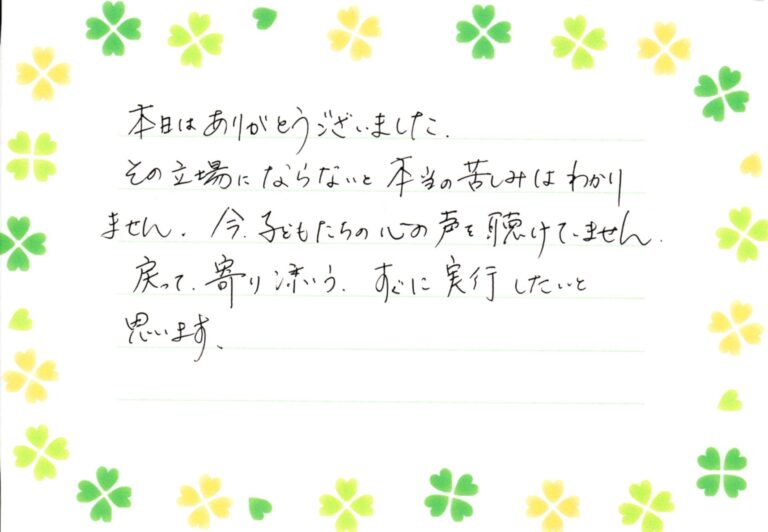 本日はありがとうございました.
その立場にならないと本当の苦しみはわかり
ません. 今.子どもたちの心の声を聴けていません.
戻って.寄り添いう. すぐに実行したいと
思います.